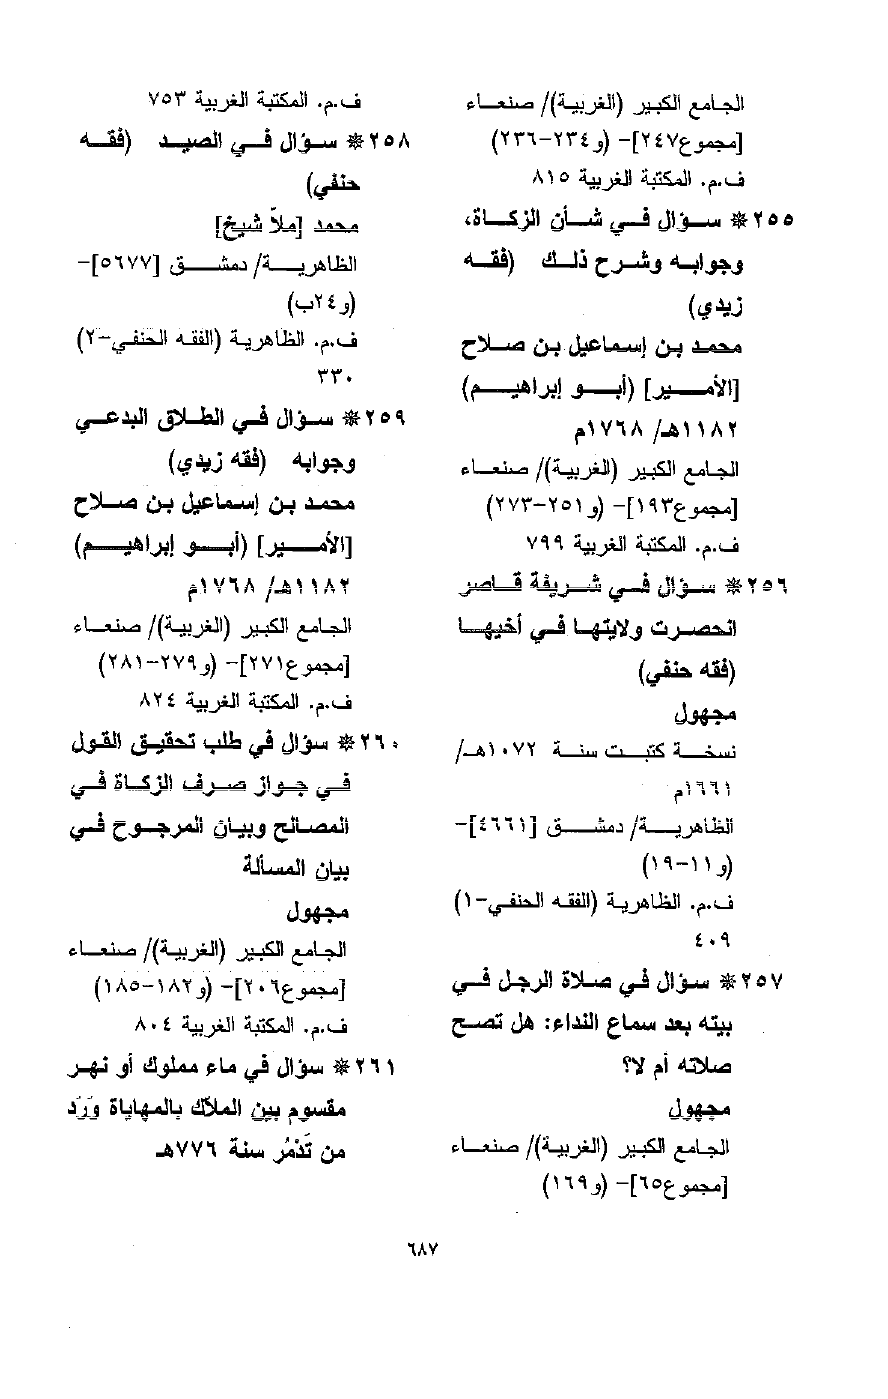 الجامع الكبير (الغربية)/ صنعاء
[مجموع٢٤٧]- (و٢٣٤-٢٣٦)
ف.م. المكتبة الغربية ٨١٥
٢٥٥ * سؤال في شأن الزكاة،
وجوابه وشرح ذلك (فقه
زيدي)
محمد بن إسماعيل بن صلاح
[الأمير] (أبو إبراهيم)
١١٨٢هـ/ ١٧٦٨م
الجامع الكبير (الغربية)/ صنعاء
[مجموع١٩٣]- (و٢٥١-٢٧٣)
ف.م. المكتبة الغربية ٧٩٩
٢٥٦ * سؤال في شريفة قاصر
انحصرت ولايتها في أخيها
(فقه حنفي)
مجهول
نسخة كتبت سنة ١٠٧٢هـ/
١٦٦١م
الظاهرية/ دمشق [٤٦٦١]-
(و١١-١٩)
ف.م. الظاهرية (الفقه الحنفي-١)
٤٠٩
٢٥٧ * سؤال في صلاة الرجل في
بيته بعد سماع النداء: هل تصح
صلاته أم لا؟
مجهول
الجامع الكبير (الغربية)/ صنعاء
[مجموع٦٥]- (و١٦٩)
ف.م. المكتبة الغربية ٧٥٣
٢٥٨ * سؤال في الصيد (فقه
حنفي)
محمد [ملاّ شيخ]
الظاهرية/ دمشق [٥٦٧٧]-
(و٢٤ب)
ف.م. الظاهرية (الفقه الحنفي-٢)
٣٣٠
٢٥٩ * سؤال في الطلاق البدعي
وجوابه (فقه زيدي)
محمد بن إسماعيل بن صلاح
[الأمير] (أبو إبراهيم)
١١٨٢هـ/ ١٧٦٨م
الجامع الكبير (الغربية)/ صنعاء
[مجموع٢٧١]- (و٢٧٩-٢٨١)
ف.م. المكتبة الغربية ٨٢٤
٢٦٠ * سؤال في طلب تحقيق القول
في جواز صرف الزكاة في
المصالح وبيان المرجوح في
بيان المسألة
مجهول
الجامع الكبير (الغربية)/ صنعاء
[مجموع٢٠٦]- (و١٨٢-١٨٥)
ف.م. المكتبة الغربية ٨٠٤
٢٦١ * سؤال في ماء مملوك أو نهر
مقسوم بين الملاّك بالمهاياة وَرَد
من تَدْمُر سنة ٧٧٦هـ
٦٨٧